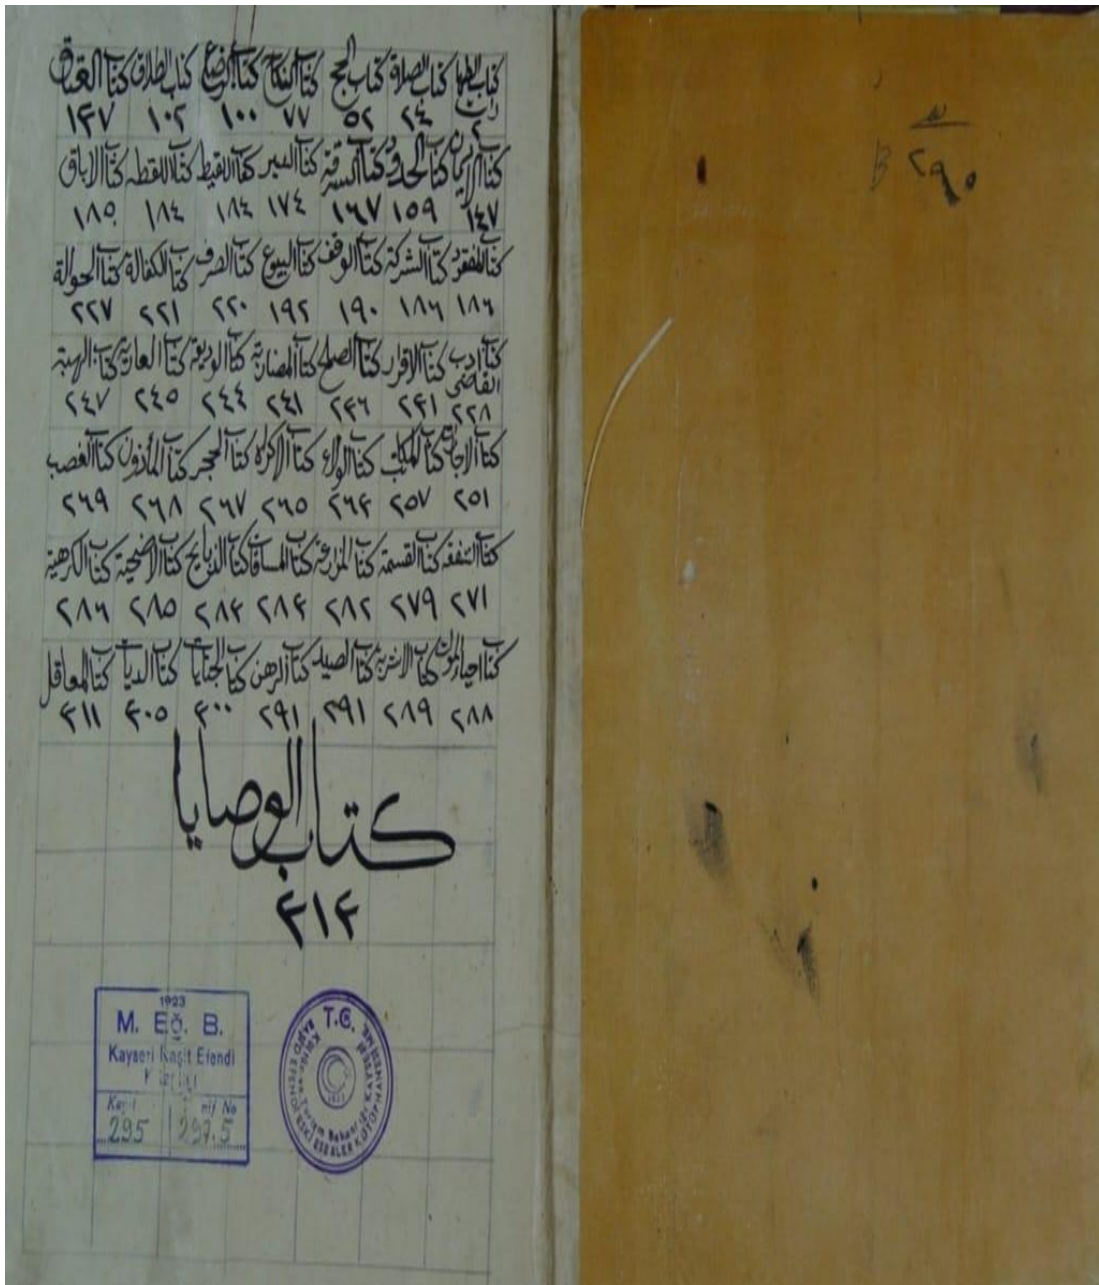 كتاب الطهارت كتاب الصلاة كتاب الحج كتاب النكاح كتاب الرضاع كتاب الطلاق كتاب العتاق
٢ ٢٤ ٥٢ ٧٧ ١٠٠ ١٠٢ ١٣٧
كتاب الايمان كتاب الحدود كتاب السرقة كتاب السير كتاب اللقيط كتاب اللقطه كتاب الاباق
١٤٧ ١٥٩ ١٦٧ ١٧٤ ١٨٤ ١٨٤ ١٨٥
كتاب المفقود كتاب الشركة كتاب الوقف كتاب البيوع كتاب الصرف كتاب الكفالة كتاب الحوالة
١٨٦ ١٨٦ ١٩٠ ١٩٢ ٢٢٠ ٢٢١ ٢٢٧
كتاب ادب القاضى كتاب الاقرار كتاب الصلح كتاب المضاربة كتاب الوديعة كتاب العارية كتاب الهبة
٢٢٨ ٢٣١ ٢٣٦ ٢٤١ ٢٤٤ ٢٤٥ ٢٤٧
كتاب الاجارة كتاب المكاتب كتاب الولاء كتاب الاكراه كتاب الحجر كتاب المأذون كتاب الغصب
٢٥١ ٢٥٧ ٢٦٣ ٢٦٥ ٢٦٧ ٢٦٨ ٢٦٩
كتاب الشفعة كتاب القسمة كتاب المزارعة كتاب المساقات كتاب الذبايح كتاب الاضحية كتاب الكرهية
٢٧١ ٢٧٩ ٢٨٢ ٢٨٣ ٢٨٣ ٢٨٥ ٢٨٦
كتاب احياء الموات كتاب الاشربة كتاب الصيد كتاب الرهن كتاب الجنايات كتاب الديات كتاب المعاقل
٢٨٨ ٢٨٩ ٢٩١ ٢٩١ ٣٠٠ ٣٠٥ ٣١١
كتاب الوصايا
٣١٣
1923
M. EĞ. B.
Kayseri Raşit Efendi
Kayıt
No
295
297.5
T.C.
Kültür ve Turizm Bakanlığı
KAYSERİ RAŞİD EFENDİ ESKİ ESERLER KÜTÜPHANESİ
B ٢٩٥